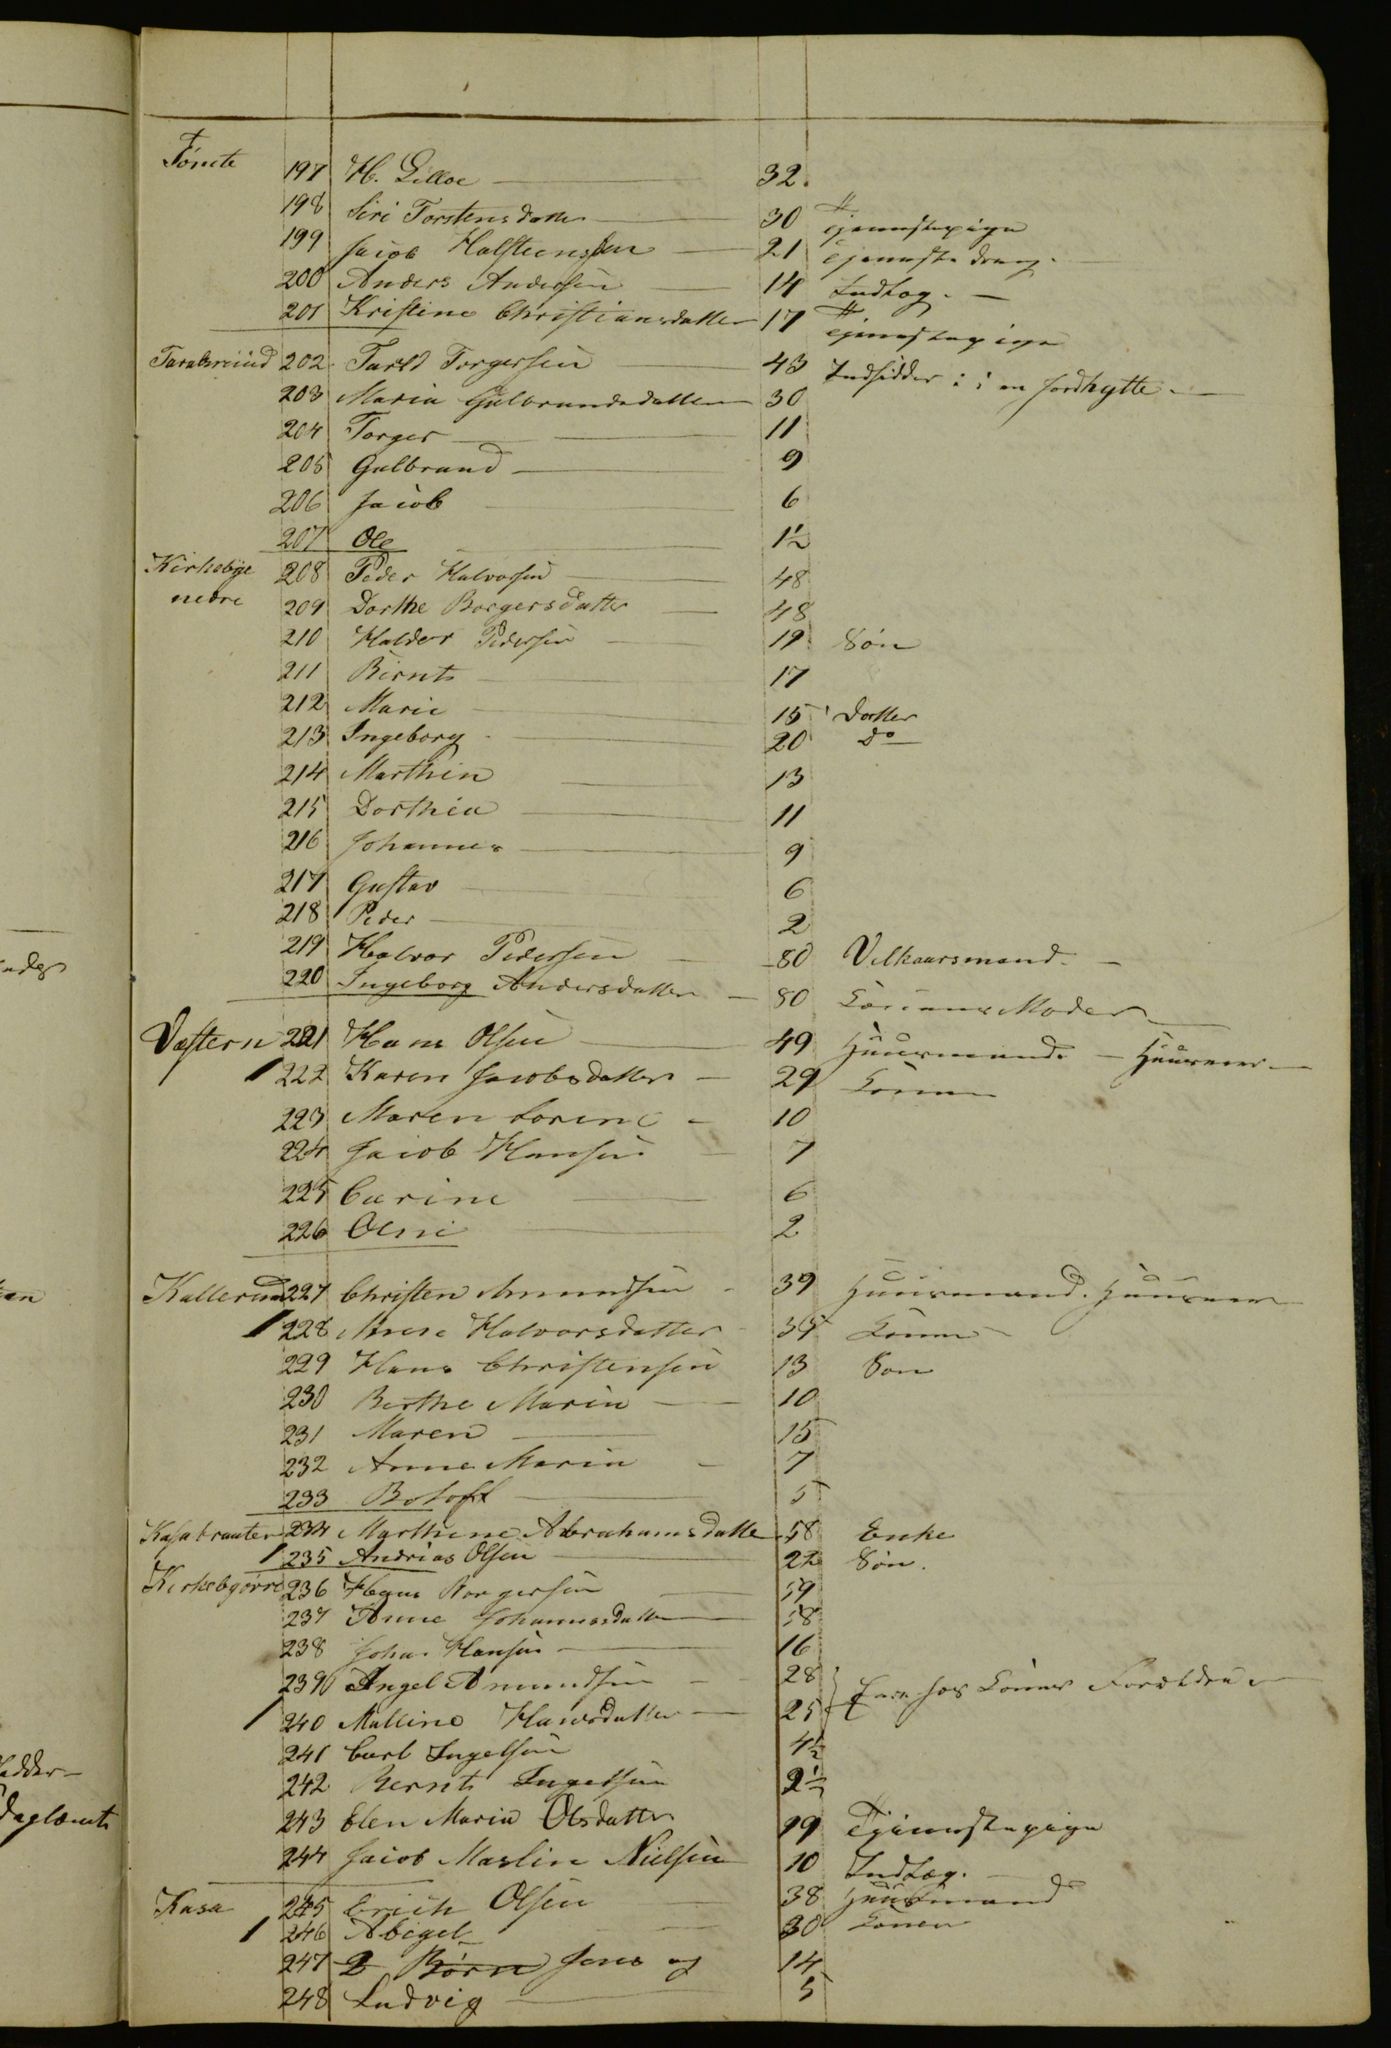 Tömte 197 H. Lilloe 32.
198 Siri Torstensdatter 30 Tjenestepige
199 Jacob Halsteensen 21 Tjeneste dreng.
200 Anders Andersen 14 Indlag.
201 Kristine Christiansdatter 17 Tjenestepige
Taralsrüüd 202 Tarld Torgersen 43 Indsidder i en Jordhytte
203 Maria Gulbrandsdatter 30
204 Torger 11
205 Gulbrand 9
206 Jacob 6
207 Ole 1½
Kirkebye 208 Peder Halvorsen 48
nedre 209 Dorthe Borgersdatter 48
210 Haldor Pedersen 19 Sön
211 Bernt 17
212 Marie 15 Datter
213 Ingeborg 20 Do
214 Marthin 13
215 Dorthea 11
216 Johannes 9
217 Gustav 6
218 Peder 2
219 Halvor Pedersen 80 Vilkaarsmand.
220 Ingeborg Andersdatter 80 Konens Moder
Væstern 221 Hans Olsen 49 Huusmand
1 222 Karen Jacobsdatter 29 Konen
223 Maren Lorine 10
224 Jacob Hansen 7
225 Carine 6
226 Oline 2
Kallerud 227 Christen Amundsen 39 Huusmand.
1 228 Anne Halvorsdatter 39 Konen
229 Hans Christensen 13 Son
230 Berthe Marie 10
231 Maren 15
232 Anne Marie 7
233 Botoff 5
Kasabraaten 234 Marthine Abrahamsdatter 58 Enke
1 235 Andreas Olsen 22 Sön.
Kirkebyövre 236 Hans Borgersen 59
237 Anne Johannesdatter 58
238 Johan Hansen 16
239 Ingel Amundsen 28
1 240 Malline Hansdatter 25 hos Konens Forældre
241 Carl Ingelsen 4½
242 Bernt Ingelsen 2½
243 Elen Maria Olsdatter 19 Tjenestepige
244 Jacob Maslin Nielsen 10 Indlæg.
Kasa 245 Erich Olsen 38 Huusmand
1 246 Abigel 30 Konen
247 2 Börn Jens og 14
248 Ludvig 5